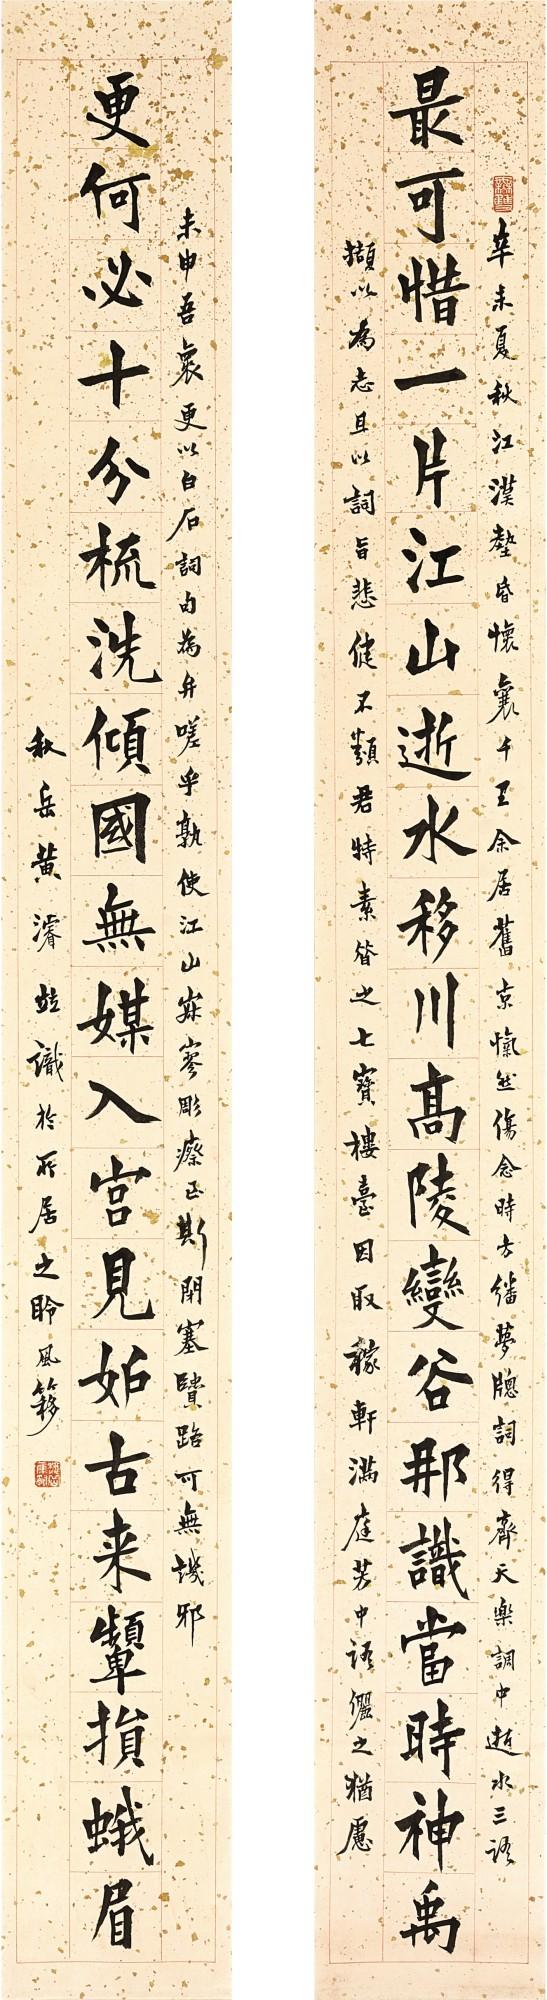 最可惜一片江山逝水移川高陵變谷那識當時神禹
辛未夏秋江漢墊昏懷襄千里余居舊京愾然傷念時方繙夢牕詞得齊天樂調中逝水三語
擷以為志且以詞旨悲健不類君特素眢之七寶樓臺因取稼軒滿庭芳中語儷之猶慮
更何必十分梳洗傾國無媒入宮見妬古来顰損蛾眉
未申吾衷更以白石詞句為弁嗟乎孰使江山寂寥彫瘵至斯閉塞賢路可無譏邪
秋岳黃濬並識於所居之聆風簃